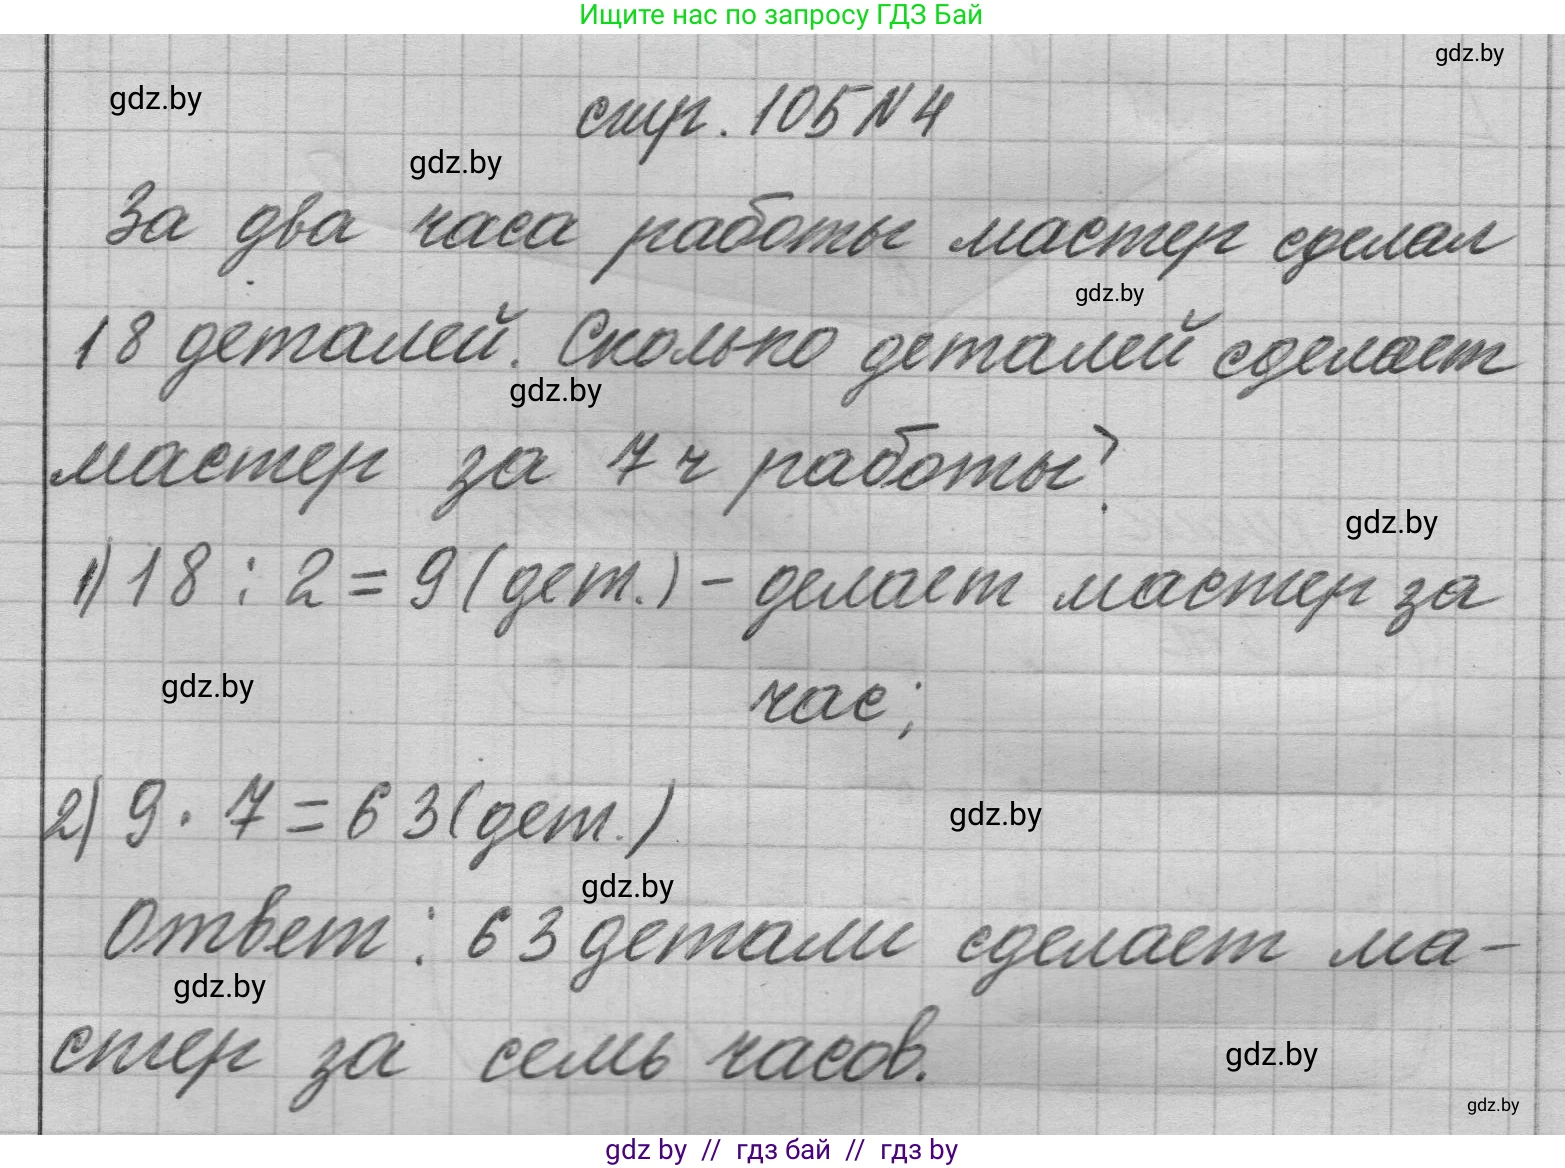 Ищите нас по запросу ГДЗ Бай
gdz.by
gdz.by
стр. 105 N 4
gdz.by
За два часа работы мастер сделал
gdz.by
18 деталей. Сколько деталей сделает
gdz.by
мастер за 7 ч работы?
gdz.by
1) 18 : 2 = 9 (дет.) - делает мастер за
gdz.by
час;
2) 9 · 7 = 63 (дет.)
gdz.by
gdz.by
Ответ: 63 детали сделает ма-
gdz.by
стер за семь часов.
gdz.by
gdz.by
gdz by // гдз бай // гдз by